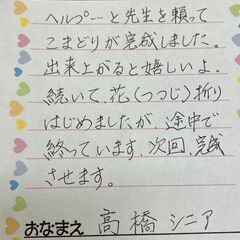 ヘルプ――と先生を頼って
こまどりが完成しました。
出来上がると嬉しいよ。
続いて、花(つつじ)折り
はじめましたが、途中で
終っています。次回、完成
させます。
おなまえ 高橋シニア